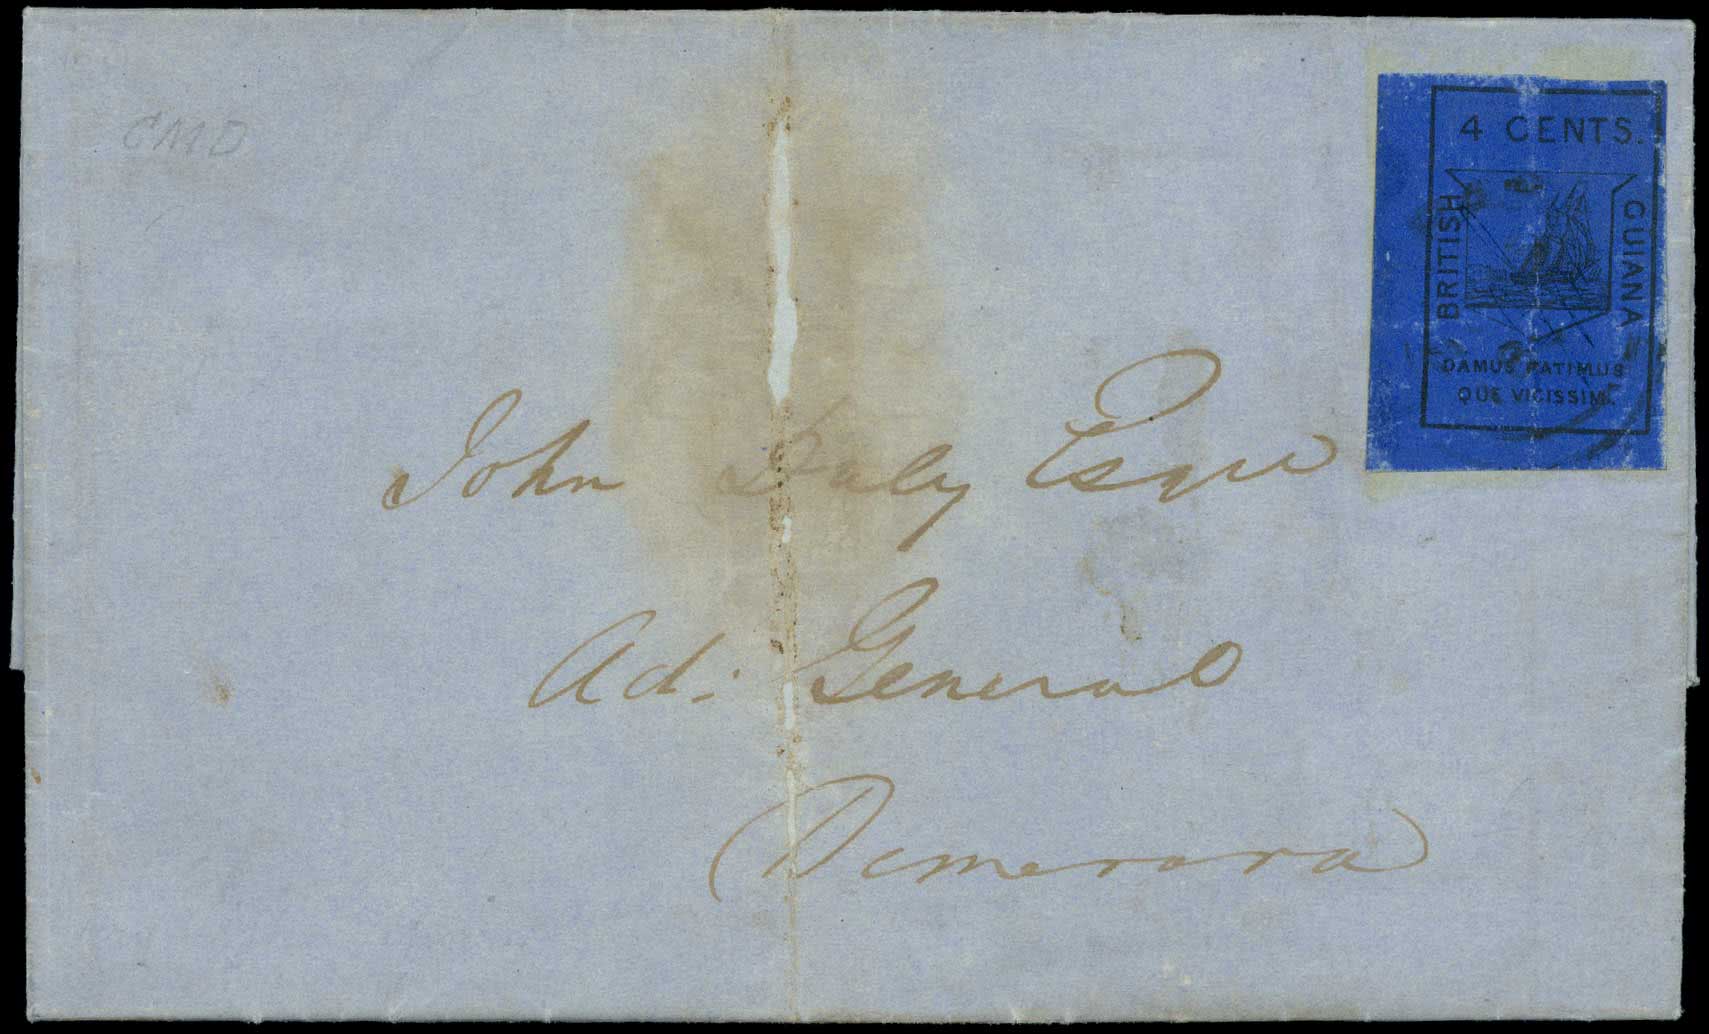 CMD
4 CENTS.
BRITISH
GUIANA
DAMUS PATIMUS
QUE VICISSIM.
John Daly Esqre
Ad: General
Demerara